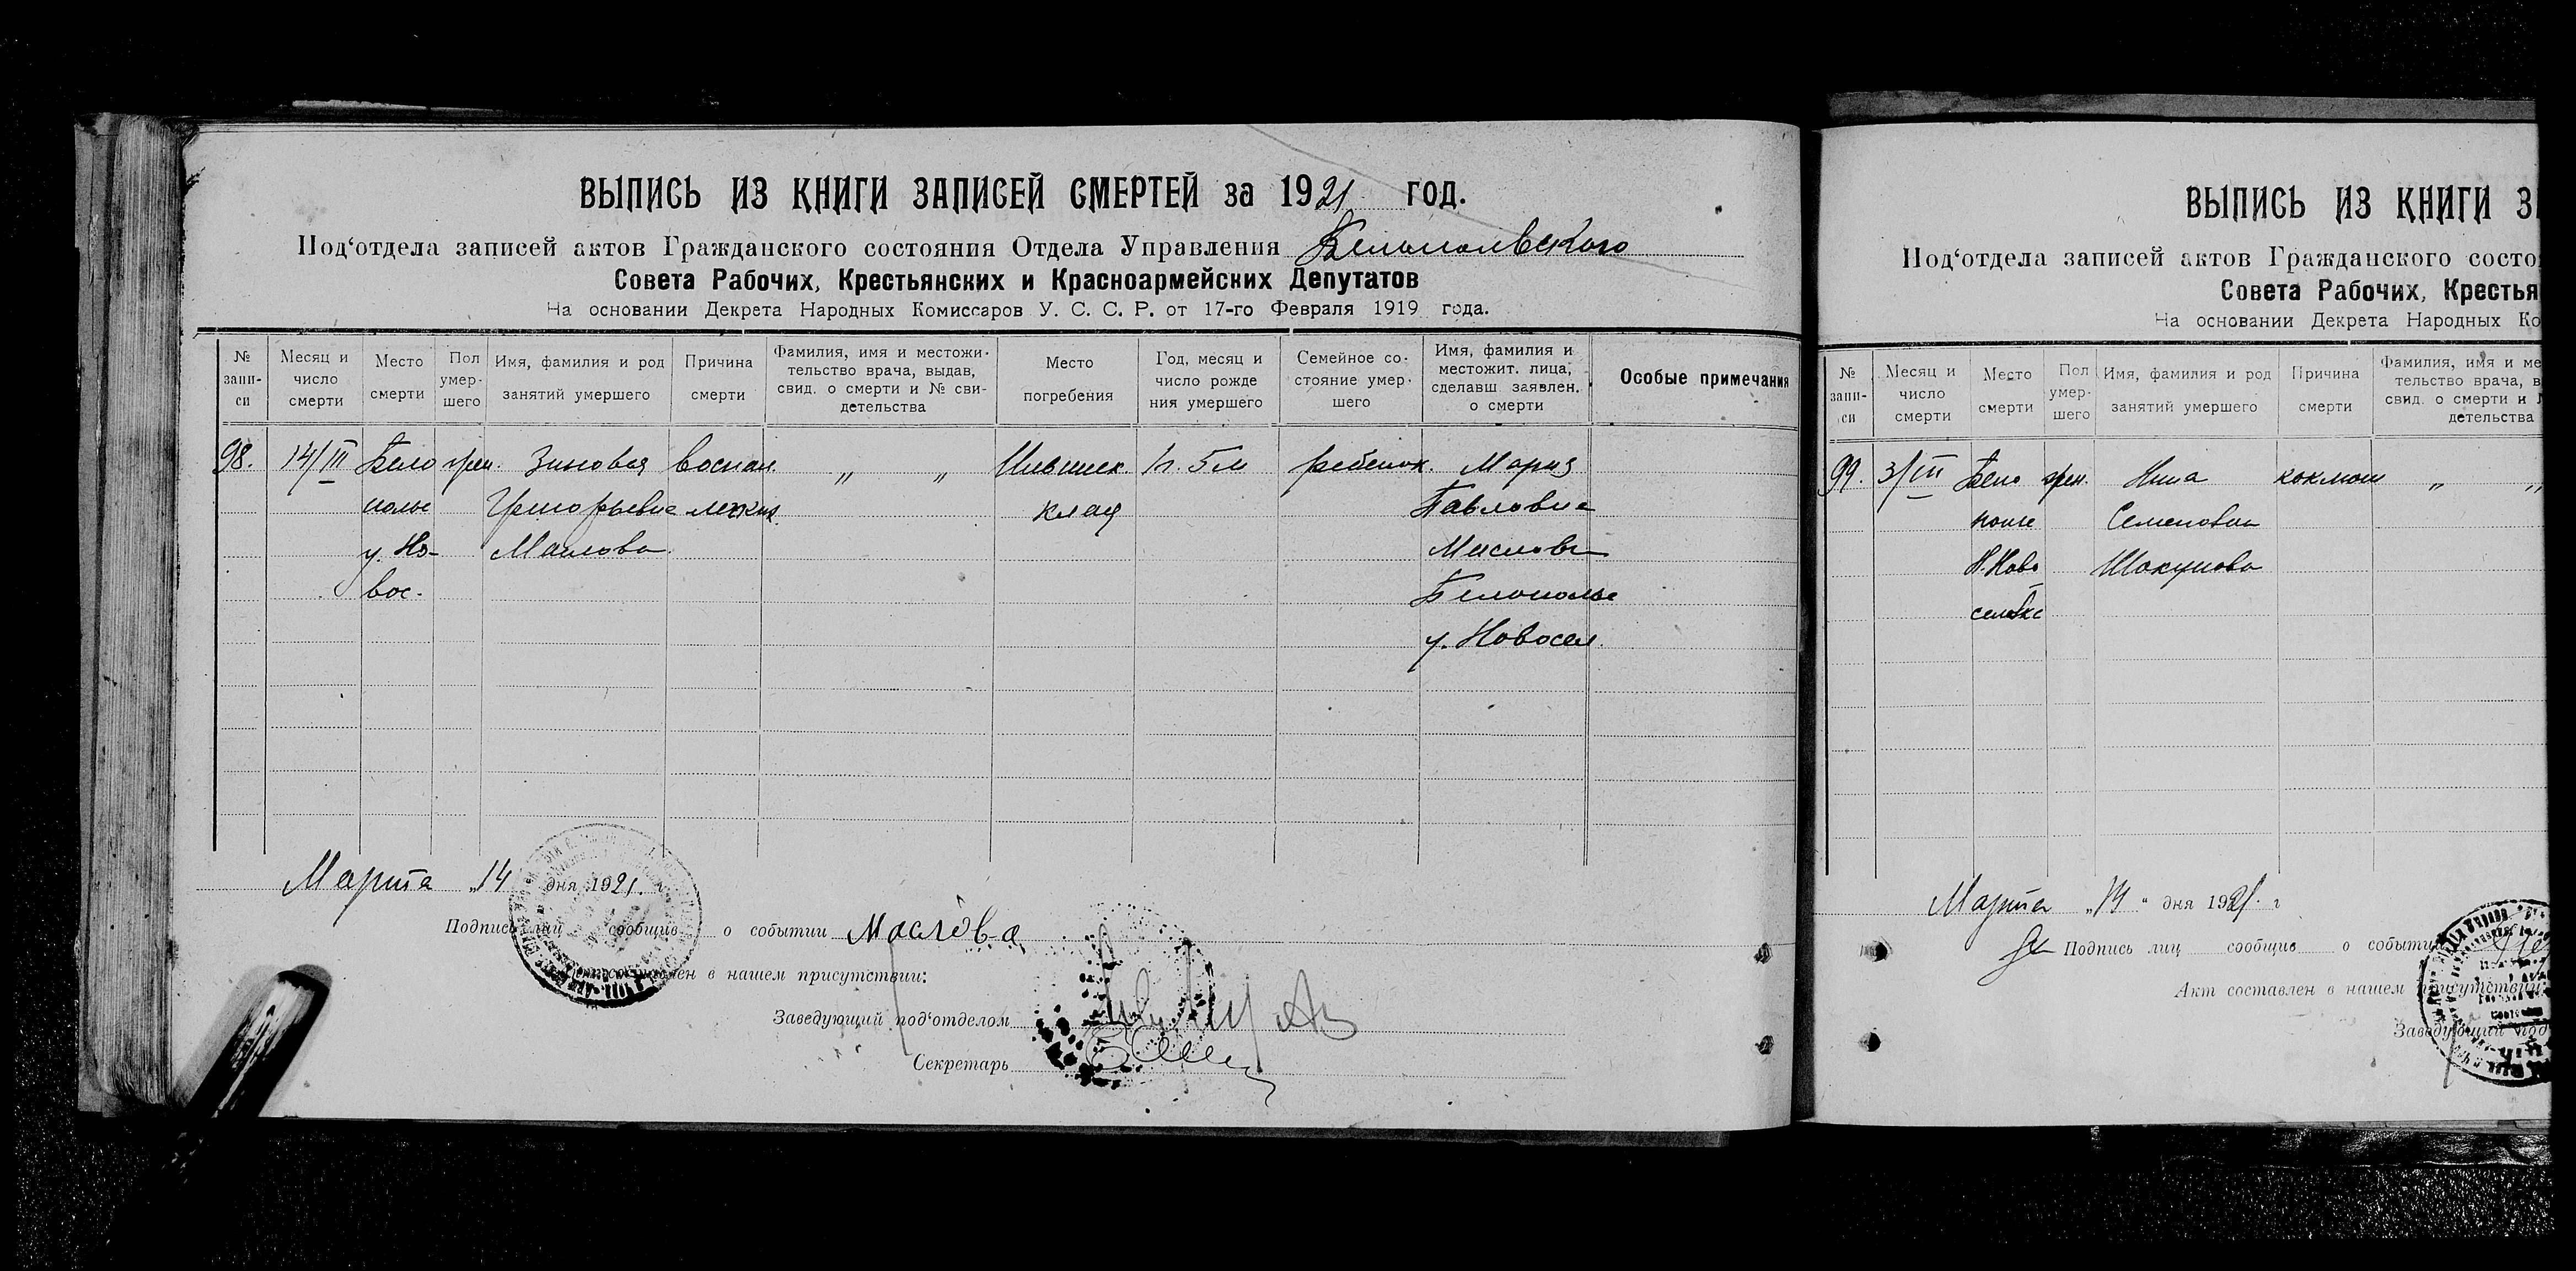 ВЫПИСЬ ИЗ КНИГИ ЗАПИСЕЙ СМЕРТЕЙ за 1921 год.
Под‘отдела записей актов Гражданского состояния Отдела Управления Белопольского
Совета Рабочих, Крестьянских и Красноармейских Депутатов
На основании Декрета Народных Комиссаров У. С. С. Р. от 17-го Февраля 1919 года.
№ запи- си
Месяц и число смерти
Место смерти
Пол умер- шего
Имя, фамилия и род занятий умершего
Причина смерти
Фамилия, имя и местожи- тельство врача, выдав, свид. о смерти и № сви- детельства
Место погребения
Год, месяц и число рожде ния умершего
Семейное со- стояние умер- шего
Имя, фамилия и местожит. лица, сделавш заявлен. о смерти
Особые примечания
98. 14/III Бело жен. Зиновия воспал. „ „ Ильинск. 1г. 5м ребенок. Мария
полье Григорьевна легких клад Павловна
у. Но- Маслова Маслова
вос. Белополье
у. Новосел.
Марта „14 дня 1921. г
Подпись лиц сообщив о событии Маслова
Акт составлен в нашем присутствии:
Заведующий под‘отделом
Секретарь
ВЫПИСЬ ИЗ КНИГИ З
Под‘отдела записей актов Гражданского состо
Совета Рабочих, Крестья
На основании Декрета Народных Ко
№ запи- си
Месяц и число смерти
Место смерти
Пол умер- шего
Имя, фамилия и род занятий умершего
Причина смерти
Фамилия, имя и ме тельство врача, в свид. о смерти и детельства
99. 3/III Бело жен. Нина коклюш „ „
полье Семеновна
Н. Ново Шокунова
селовке
Марта „14“ дня 1921. г
Подпись лиц сообщив о событии
Акт составлен в нашем присутствии
Заведующий под